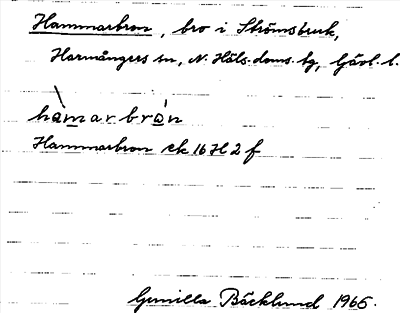 Hammarbron, bro i Strömsbruk,
Harmångers sn, N. Häls. doms. hg, Gävl. l.
hàmarbrón
Hammarbron ek 16H2f
Gunilla Bäcklund 1965.